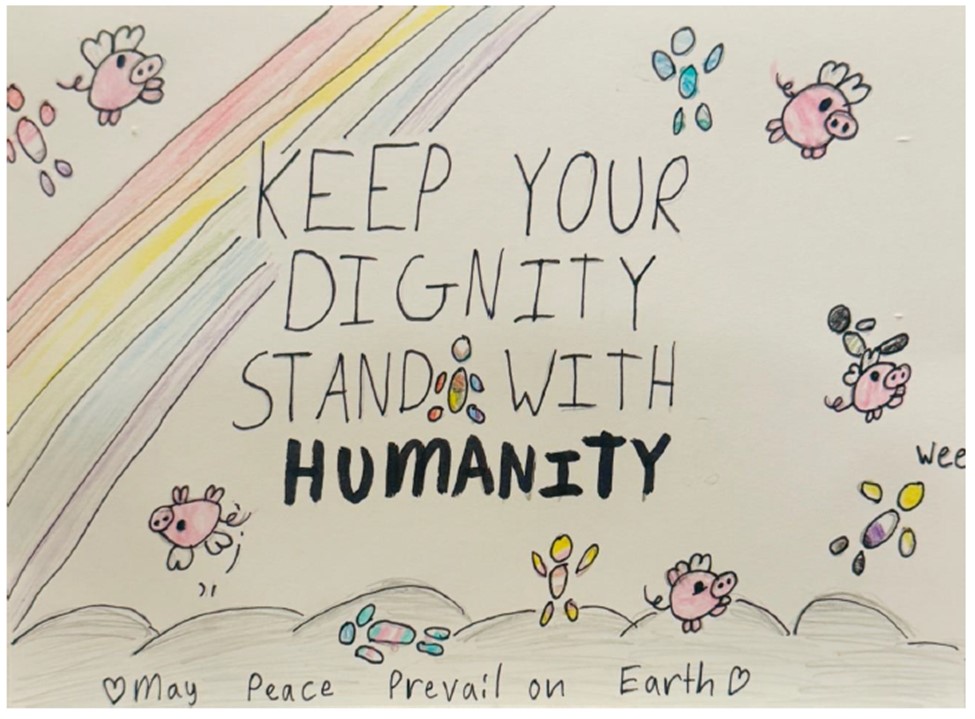 KEEP YOUR
DIGNITY
STAND WITH
HUMANITY
wee
♡May Peace Prevail on Earth♡